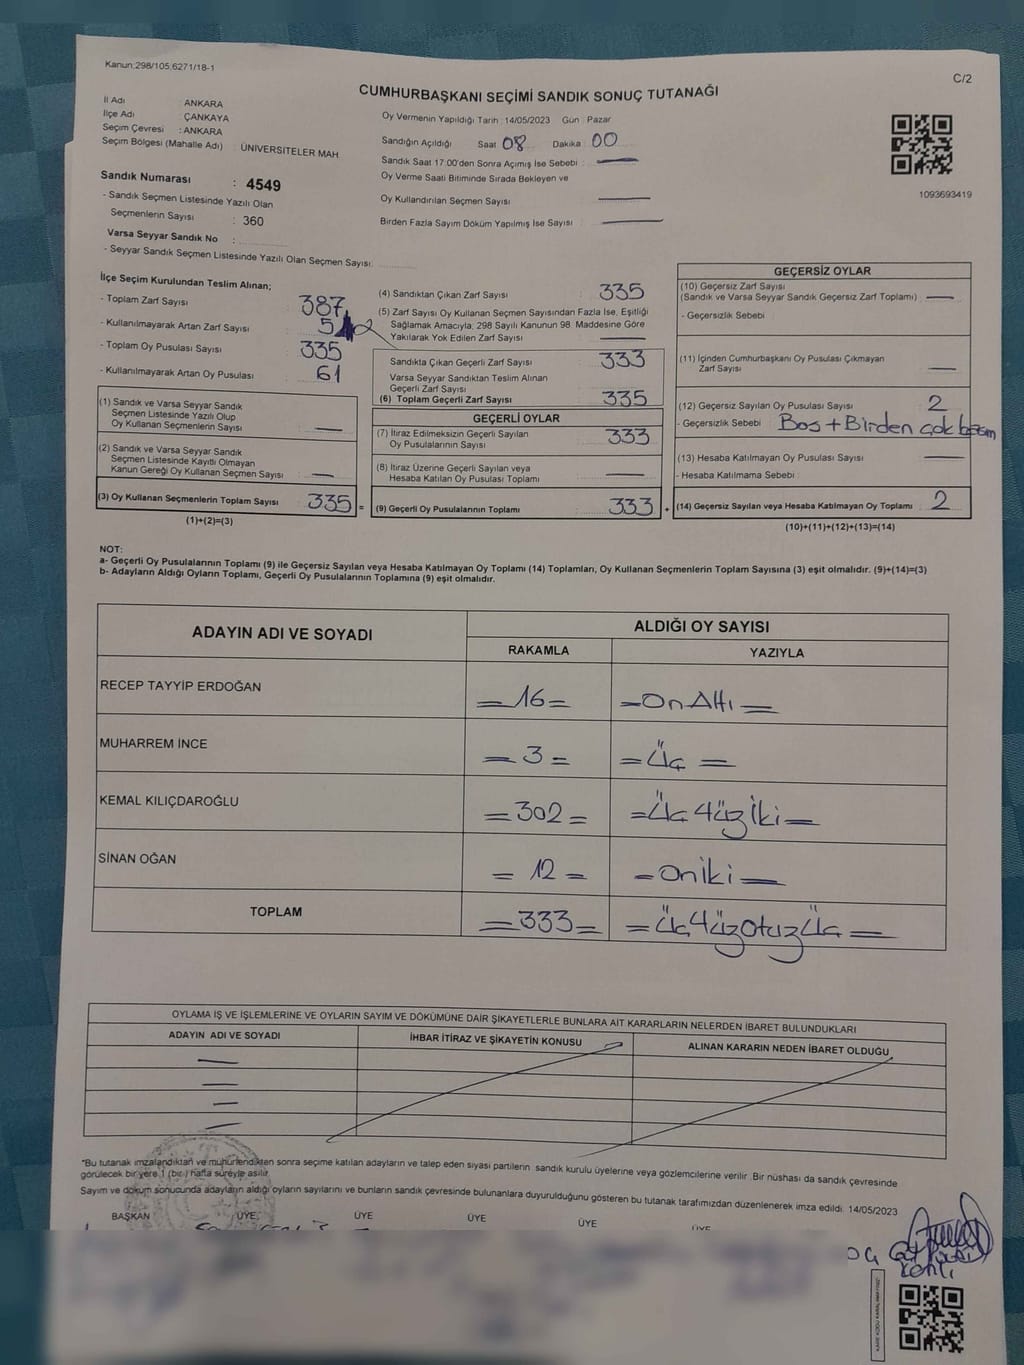 Kanun:298/105,6271/18-1
C/2
CUMHURBAŞKANI SEÇİMİ SANDIK SONUÇ TUTANAĞI
İl Adı ANKARA
İlçe Adı ÇANKAYA
Seçim Çevresi : ANKARA
Seçim Bölgesi (Mahalle Adı) : ÜNİVERSİTELER MAH
Sandık Numarası : 4549
- Sandık Seçmen Listesinde Yazılı Olan
Seçmenlerin Sayısı : 360
Varsa Seyyar Sandık No :
- Seyyar Sandık Seçmen Listesinde Yazılı Olan Seçmen Sayısı:
Oy Vermenin Yapıldığı Tarih : 14/05/2023 Gün : Pazar
Sandığın Açıldığı Saat 08 Dakika : 00
Sandık Saat 17:00'den Sonra Açımış İse Sebebi :
Oy Verme Saati Bitiminde Sırada Bekleyen ve
Oy Kullandırılan Seçmen Sayısı
Birden Fazla Sayım Döküm Yapılmış İse Sayısı
1093693419
İlçe Seçim Kurulundan Teslim Alınan;
- Toplam Zarf Sayısı 387
- Kullanılmayarak Artan Zarf Sayısı
- Toplam Oy Pusulası Sayısı 335
- Kullanılmayarak Artan Oy Pusulası 61
(1) Sandık ve Varsa Seyyar Sandık
Seçmen Listesinde Yazılı Olup
Oy Kullanan Seçmenlerin Sayısı
(2) Sandık ve Varsa Seyyar Sandık
Seçmen Listesinde Kayıtlı Olmayan
Kanun Gereği Oy Kullanan Seçmen Sayısı
(3) Oy Kullanan Seçmenlerin Toplam Sayısı 335 =
(1)+(2)=(3)
(4) Sandıktan Çıkan Zarf Sayısı : 335
(5) Zarf Sayısı Oy Kullanan Seçmen Sayısından Fazla İse, Eşitliği
Sağlamak Amacıyla; 298 Sayılı Kanunun 98. Maddesine Göre
Yakılarak Yok Edilen Zarf Sayısı
Sandıkta Çıkan Geçerli Zarf Sayısı : 333
Varsa Seyyar Sandıktan Teslim Alınan
Geçerli Zarf Sayısı
(6) Toplam Geçerli Zarf Sayısı 335
GEÇERLİ OYLAR
(7) İtiraz Edilmeksizin Geçerli Sayılan
Oy Pusulasının Sayısı 333
(8) İtiraz Üzerine Geçerli Sayılan veya
Hesaba Katılan Oy Pusulası Toplamı
(9) Geçerli Oy Pusulalarının Toplamı 333 +
GEÇERSİZ OYLAR
(10) Geçersiz Zarf Sayısı
(Sandık ve Varsa Seyyar Sandık Geçersiz Zarf Toplamı) :
- Geçersizlik Sebebi
(11) İçinden Cumhurbaşkanı Oy Pusulası Çıkmayan
Zarf Sayısı
(12) Geçersiz Sayılan Oy Pusulası Sayısı 2
- Geçersizlik Sebebi : Boş + Birden çok basım
(13) Hesaba Katılmayan Oy Pusulası Sayısı
- Hesaba Katılmama Sebebi :
(14) Geçersiz Sayılan veya Hesaba Katılmayan Oy Toplamı 2
(10)+(11)+(12)+(13)=(14)
NOT:
a- Geçerli Oy Pusulalarının Toplamı (9) ile Geçersiz Sayılan veya Hesaba Katılmayan Oy Toplamı (14) Toplamları, Oy Kullanan Seçmenlerin Toplam Sayısına (3) eşit olmalıdır. (9)+(14)=(3)
b- Adayların Aldığı Oyların Toplamı, Geçerli Oy Pusulalarının Toplamına (9) eşit olmalıdır.
ADAYIN ADI VE SOYADI ALDIĞI OY SAYISI
RAKAMLA YAZIYLA
RECEP TAYYİP ERDOĞAN =16= =On Altı=
MUHARREM İNCE =3= =Üç=
KEMAL KILIÇDAROĞLU =302= =Üç yüz iki=
SİNAN OĞAN =12= =Oniki=
TOPLAM =333= =Üç yüz otuz Üç=
OYLAMA İŞ VE İŞLEMLERİNE VE OYLARIN SAYIM VE DÖKÜMÜNE DAİR ŞİKAYETLERLE BUNLARA AİT KARARLARIN NELERDEN İBARET BULUNDUKLARI
ADAYIN ADI VE SOYADI İHBAR İTİRAZ VE ŞİKAYETİN KONUSU ALINAN KARARIN NEDEN İBARET OLDUĞU
*Bu tutanak imzalandıktan ve mühürlendikten sonra seçime katılan adayların ve talep eden siyasi partilerin sandık kurulu üyelerine veya gözlemcilerine verilir. Bir nüshası da sandık çevresinde
görülecek bir yere 1 (bir) hafta süreyle asılır.
Sayım ve döküm sonucunda adayların aldığı oyların sayılarını ve bunların sandık çevresinde bulunanlara duyurulduğunu gösteren bu tutanak tarafımızdan düzenlenerek imza edildi. 14/05/2023
BAŞKAN ÜYE ÜYE ÜYE ÜYE ÜYE